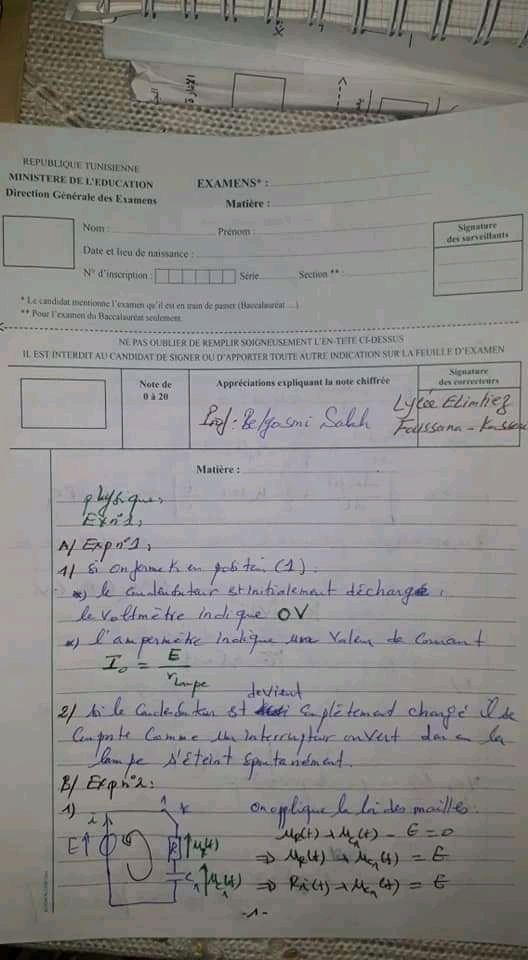 REPUBLIQUE TUNISIENNE
MINISTERE DE L'EDUCATION
Direction Générale des Examens
EXAMENS* :
Matière :
Nom : Prénom :
Date et lieu de naissance :
N° d'inscription : Série Section ** :
Signature
des surveillants
* Le candidat mentionne l'examen qu'il est en train de passer (Baccalauréat ...)
** Pour l'examen du Baccalauréat seulement.
NE PAS OUBLIER DE REMPLIR SOIGNEUSEMENT L'EN-TETE CI-DESSUS
IL EST INTERDIT AU CANDIDAT DE SIGNER OU D'APPORTER TOUTE AUTRE INDICATION SUR LA FEUILLE D'EXAMEN
Note de
0 à 20
Appréciations expliquant la note chiffrée
Prof: Belgasmi Salah
Signature
des correcteurs
Lycée Elimtiez
Foussana -
Matière :
physique,
Ex n°1,
A/ Exp n°1,
1/ si on ferme K en position (1).
*) le condensateur st initialement déchargé,
le voltmètre indique 0V
*) l'ampermètre indique une valeur de courant
I₀ = E / r lampe
2/ si le condensateur st devient complètement chargé il se
comporte comme un interrupteur ouvert donc la
lampe s'éteint spontanément.
B/ Exp n°2:
1) on applique la loi des mailles
1 K
i
E R uR(t)
C₁ uC₁(t)
uR(t) + uC₁(t) - E = 0
⇒ uR(t) + uC₁(t) = E
⇒ Ri(t) + uC₁(t) = E
-1-